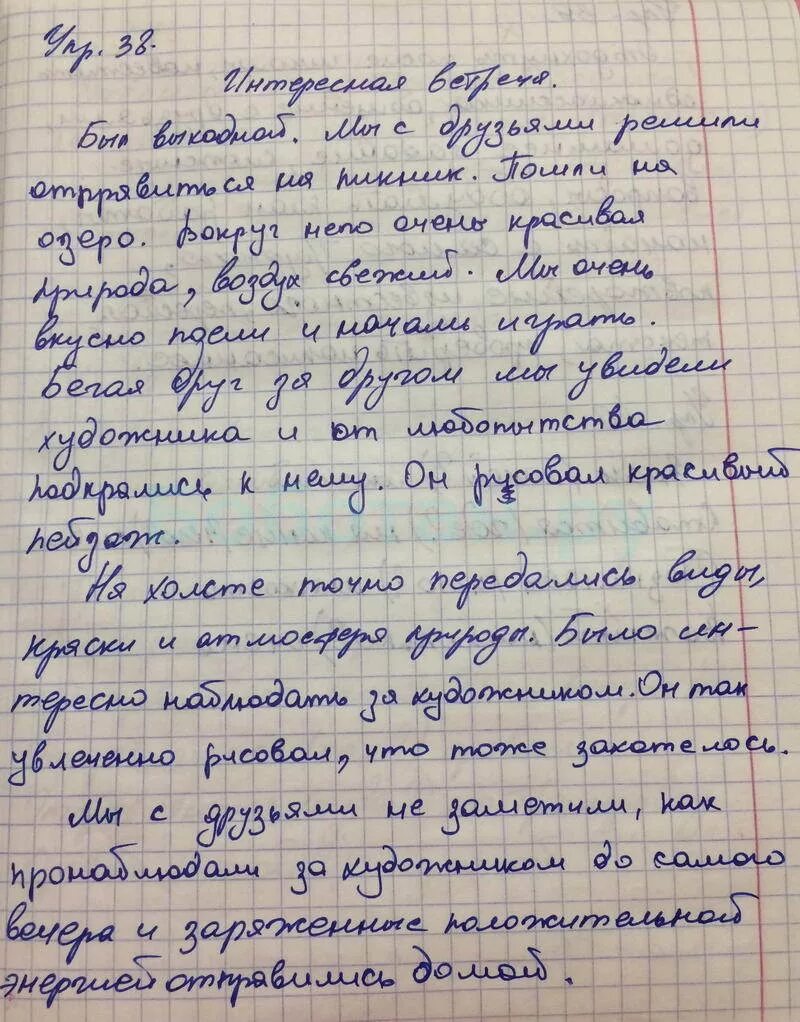 Упр. 38.
Интересная встреча.
Был выходной. Мы с друзьями решили
отправиться на пикник. Пошли на
озеро. Вокруг него очень красивая
природа, воздух свежий. Мы очень
вкусно поели и начали играть.
Бегая друг за другом мы увидели
художника и от любопытства
подкрались к нему. Он рисовал красивый
пейзаж.
На холсте точно передались виды,
краски и атмосфера природы. Было ин-
тересно наблюдать за художником. Он так
увлеченно рисовал, что тоже захотелось.
Мы с друзьями не заметили, как
пронаблюдали за художником до самого
вечера и заряженные положительной
энергией отправились домой.